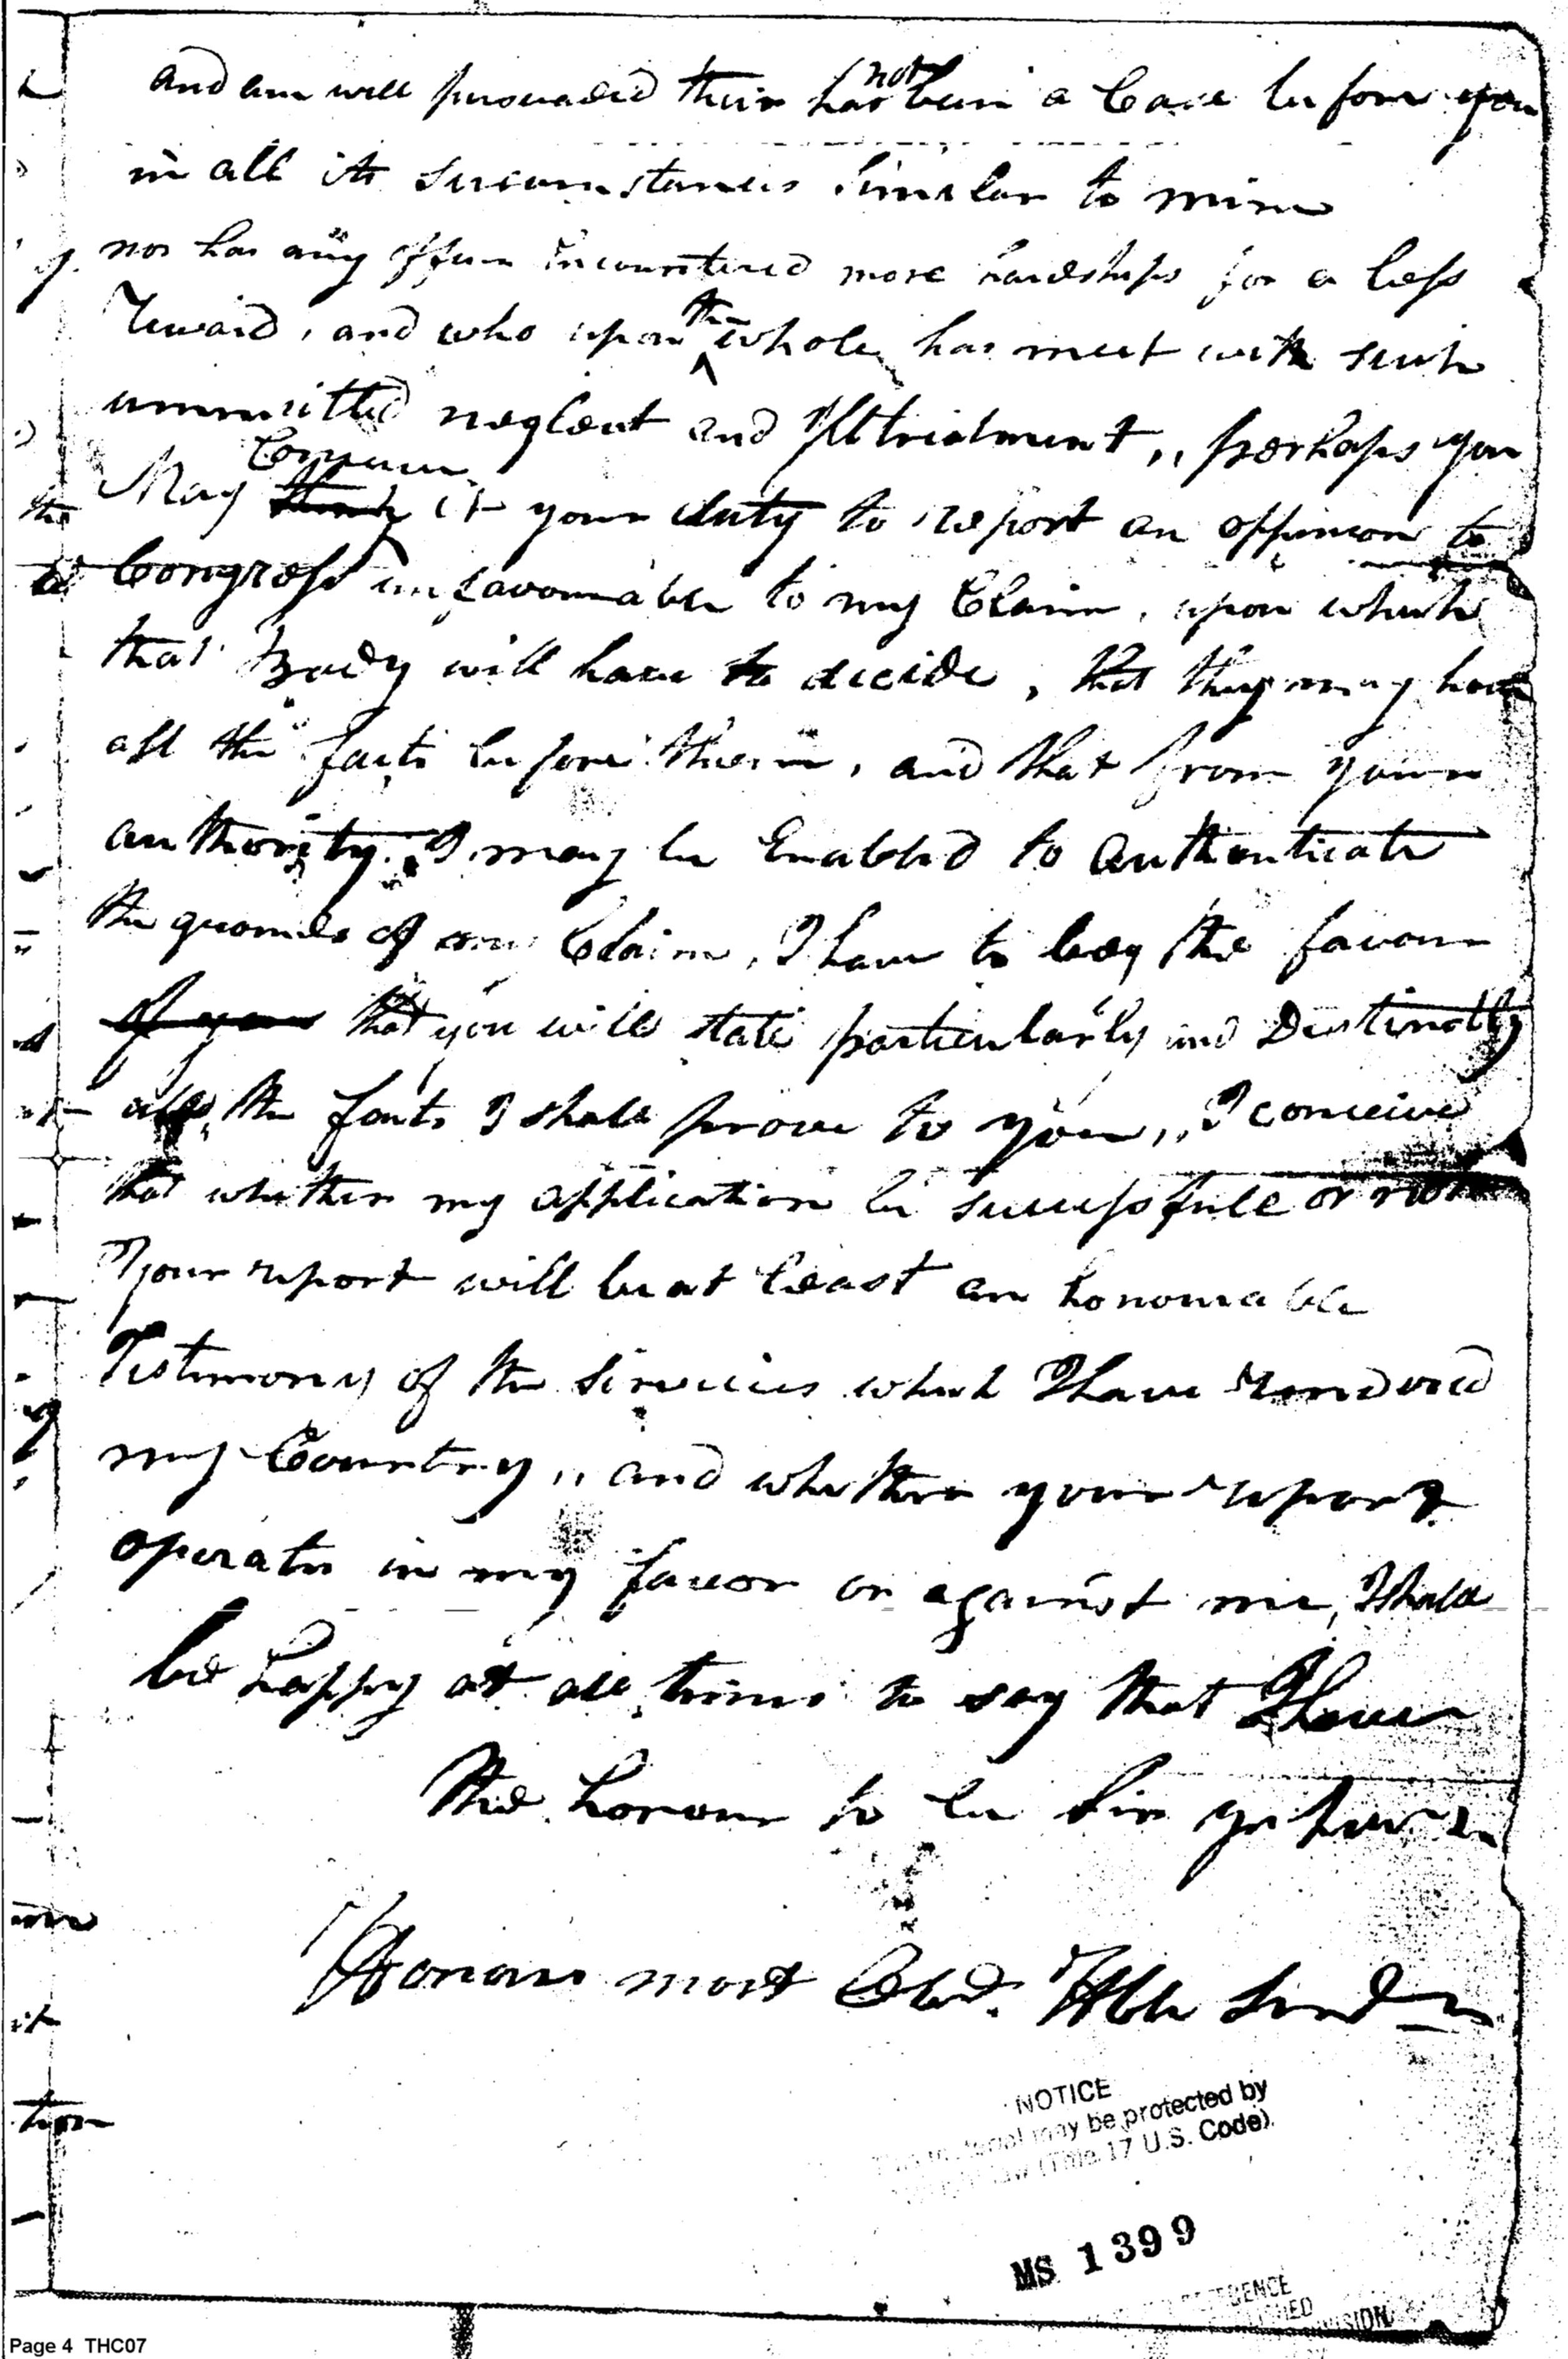 and am well persuaded their has not been a Case before you
in all its sircumstances similar to mine
nor has any officer Incountered more hardships for a less
Reward, and who upon the whole, has meet with such
unmeritted neglect and Illtreatment,, perhaps you
May think Conceive it your duty to report an oppinion to
Congress unfavourable to my Claim, upon which
that Body will have to decide, that they may have
all the facts before them, and that from your
authority. I may be Enabled to authenticate
the grounds of my Claim, I have to beg the favour
of you that you will state particularly and Distinctly
all the facts I shall prove to you,, I conceive
that whether my application be successfull or not
Your report will be at least an honourable
Testimony of the Services which I have rendered
my Country,, and whether your report
operates in my favor or against me, I shall
be happy at all times to say that I have
the honour to be Sir yr
Honours most Obd. Hble Servt
NOTICE
may be protected by
law (Title 17 U.S. Code).
MS 1399
Page 4 THC07